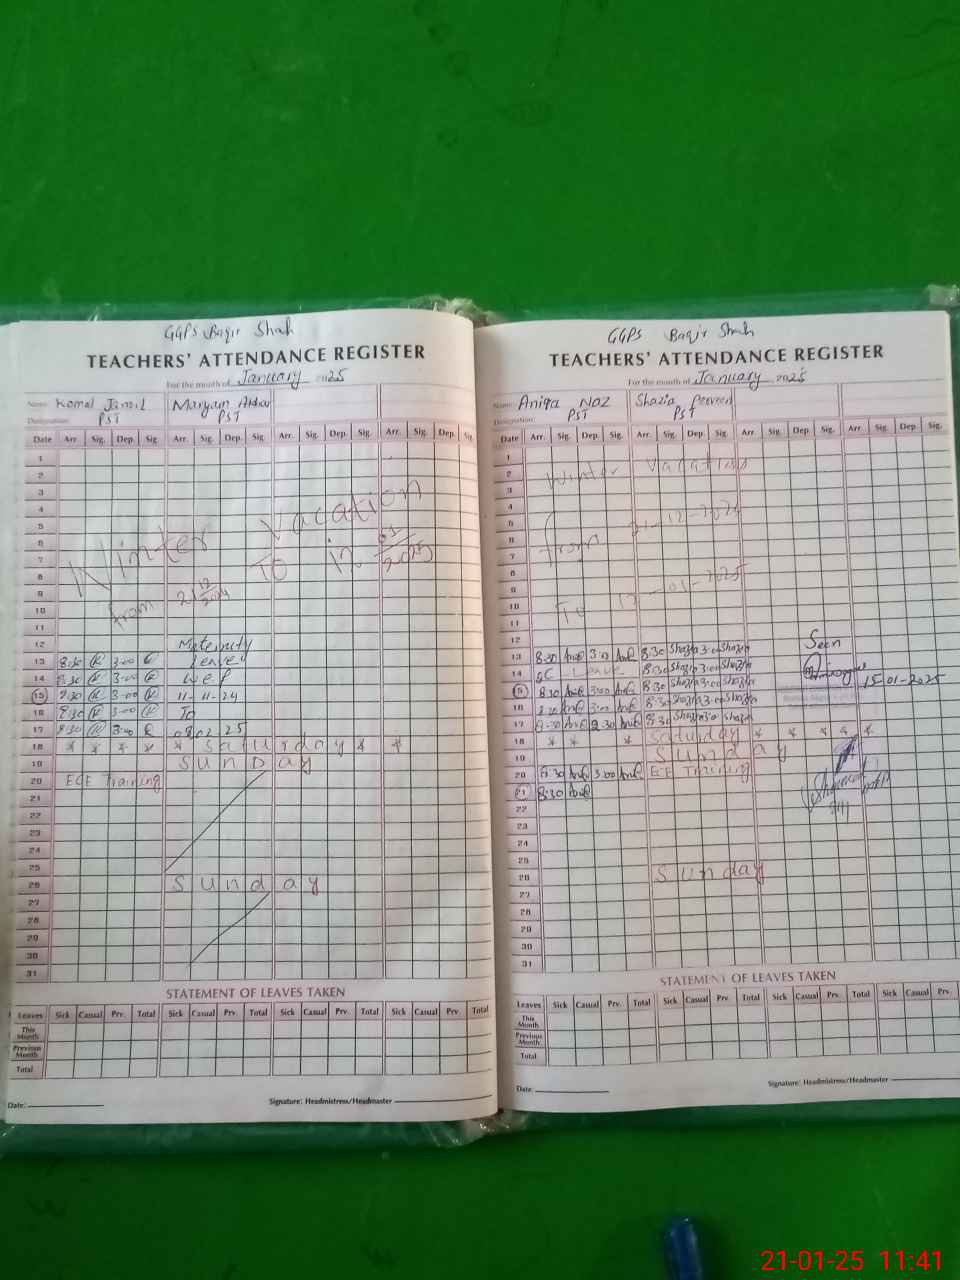 GGPS Baqir Shah
TEACHERS' ATTENDANCE REGISTER
For the month of January 2025
Name: Komal Jamil Maryam Akbar
Designation: PST PST
Date Arr. Sig. Dep. Sig. Arr. Sig. Dep. Sig. Arr. Sig. Dep. Sig. Arr. Sig. Dep. Sig.
1
2
3
4
5
6
7
8
9
10
11
Winter Vacation
from 21/12/2024 To 12/01/2025
12 Maternity
13 8:30 3:00 Leave
14 8:30 3:00 w.e.f
15 8:30 3:00 11-11-24
16 8:30 3:00 To
17 8:30 3:00 08 02 25
18 * * * * * Saturday * *
19 Sunday
20 ECE Training
21
22
23
24
25
26 Sunday
27
28
29
30
31
STATEMENT OF LEAVES TAKEN
Leaves Sick Casual Prv. Total Sick Casual Prv. Total Sick Casual Prv. Total Sick Casual Prv. Total
This Month
Previous Month
Total
Date: Signature: Headmistress/Headmaster
GGPS Baqir Shah
TEACHERS' ATTENDANCE REGISTER
For the month of January 2025
Name: Aniqa Naz Shazia Perveen
Designation: PST PST
Date Arr. Sig. Dep. Sig. Arr. Sig. Dep. Sig. Arr. Sig. Dep. Sig. Arr. Sig. Dep. Sig.
1
2
3
4
5
6
7
8
9
10
11
Winter Vacation
from 21-12-2024
To 12-01-2025
12 Seen
13 8:30 3:00 8:30 Shazia 3:00 Shazia
14 Leave 8:30 Shazia 3:00 Shazia
15 8:30 3:00 8:30 Shazia 3:00 Shazia 15-01-2025
16 8:30 3:00 8:30 Shazia 3:00 Shazia
17 8:30 8:30 Shazia Shazia
18 * * * Saturday * * * * *
19 Sunday
20 8:30 3:00 ECE Training
21 8:30
22
23
24
25
26 Sunday
27
28
29
30
31
STATEMENT OF LEAVES TAKEN
Leaves Sick Casual Prv. Total Sick Casual Prv. Total Sick Casual Prv. Total Sick Casual Prv. Total
This Month
Previous Month
Total
Date: Signature: Headmistress/Headmaster
21-01-25 11:41